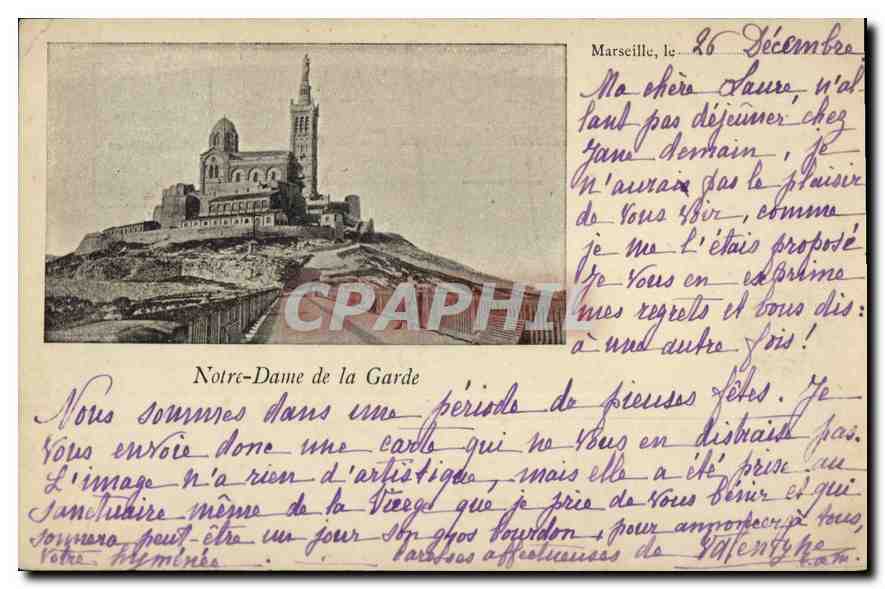 Marseille, le 26 Décembre
Ma chère Laure, n'al-
lant pas déjeûner chez
Jane demain, je
n'aurai pas le plaisir
de vous voir, comme
je me l'étais proposé
Je vous en exprime
mes regrets et vous dis:
à une autre fois!
CPARAMA
Notre-Dame de la Garde
Nous sommes dans une période de pieuses fêtes. Je
vous envoie donc une carte qui ne vous en distraise pas.
L'image n'a rien d'artistique, mais elle a été prise au
sanctuaire même de la Vierge que je prie de vous bénir et qui
sonnera peut-être un jour son gros bourdon, pour annoncer à tous,
votre hyménée. caresses affectueuses de